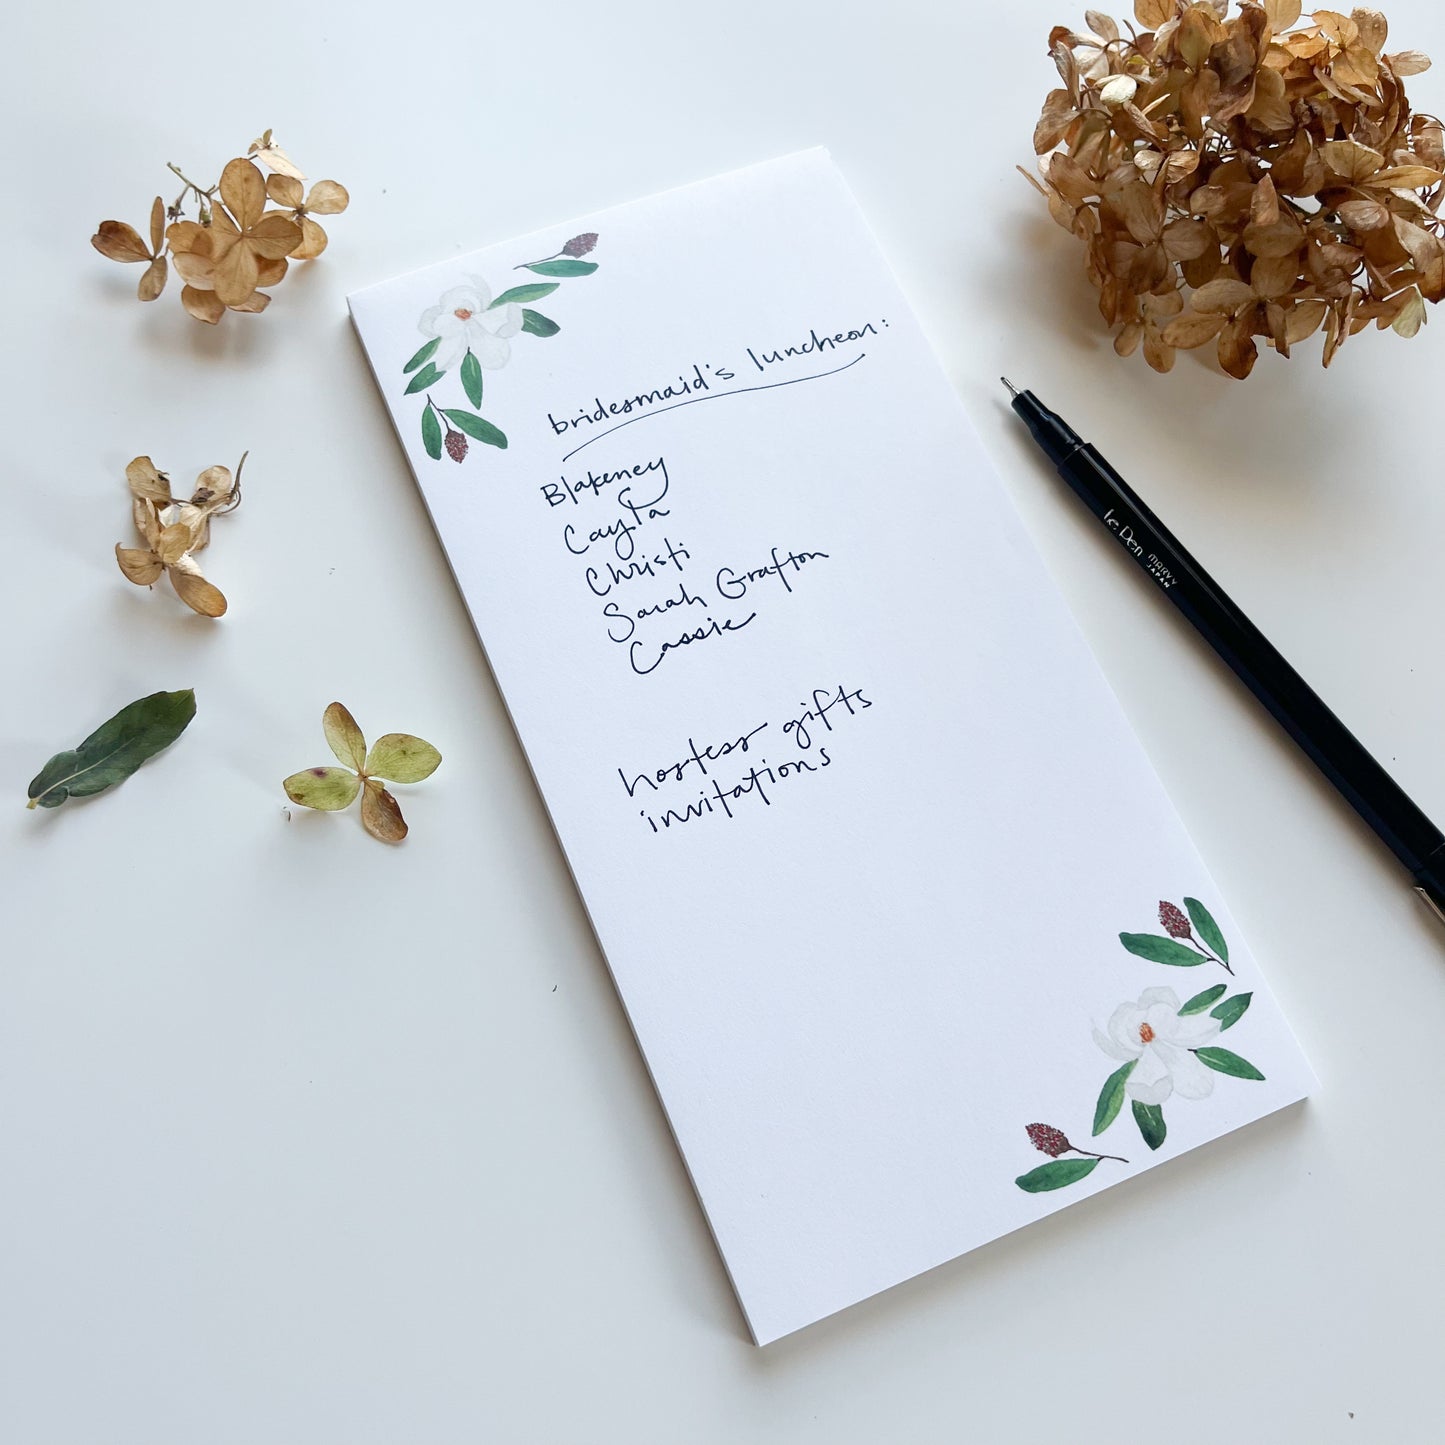 bridesmaid's luncheon:
Blakeney
Cayla
Christi
Sarah Grafton
Cassie
hostess gifts
invitations
Le Pen
MARVY
JAPAN